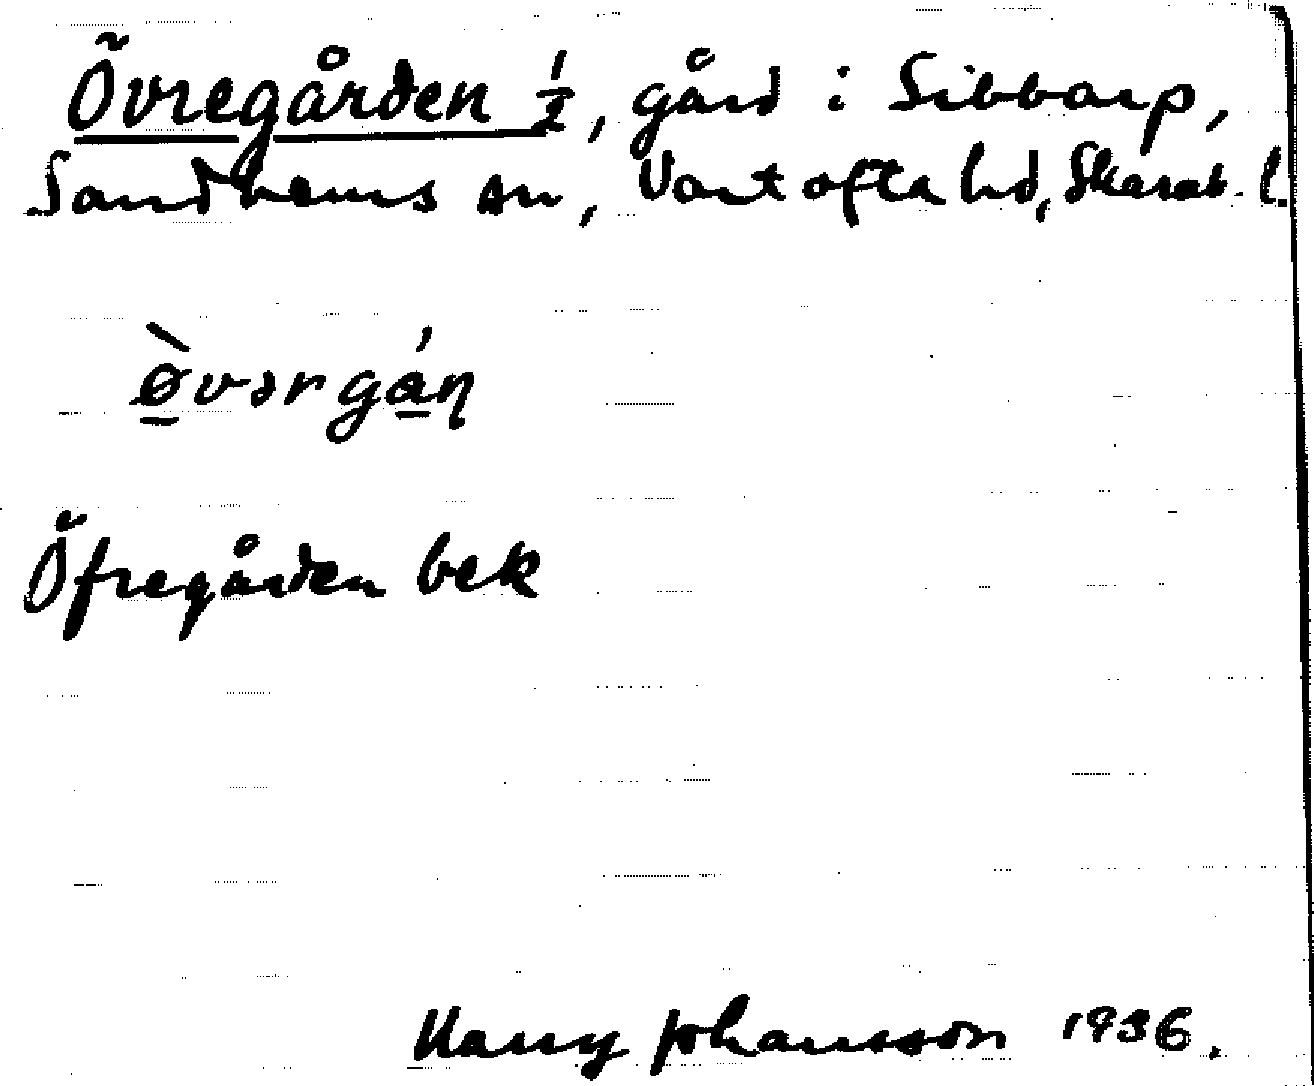 Övregården 1/2, gård i Sibbarp,
Sandhems sn, Vartofta hd, Skarab. l.
ø̱̀vərgá̱ɳ
Öfregården bek
Harry Johansson 1936.